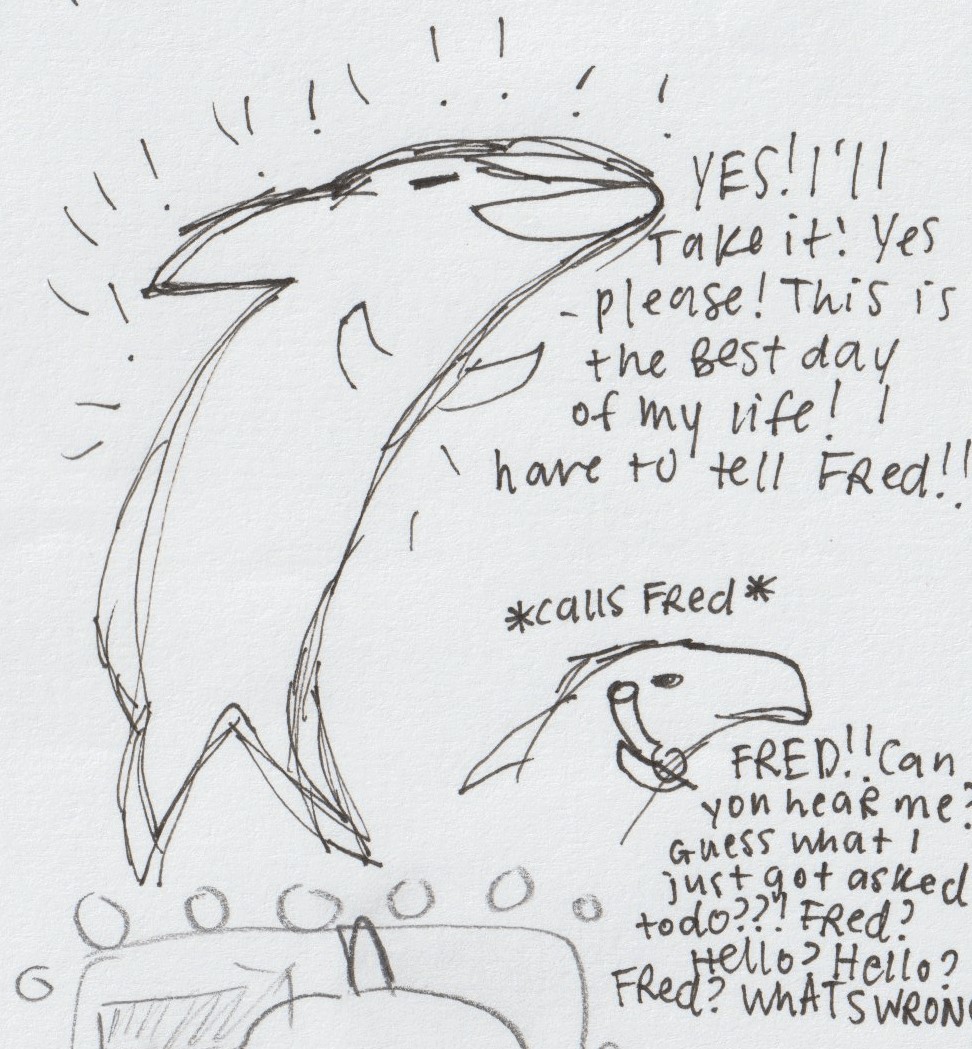 YES! I'll
Take it! Yes
please! This is
the Best day
of my life! I
have to tell FRed!!
*calls FRed*
FRED!! Can
you heaR me?
Guess what I
just got asked
to do??! FRed?
Hello? Hello?
FRed? WhATS WRONG